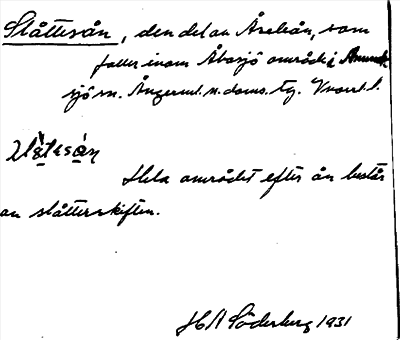 Slåttesån, den del av Åselån, som
faller inom Åbosjö område i
sjö sn. Ångerml. n. doms. tg. Vnorrl. l.
Hela området efter ån består
av slåtterskiften.
H A Söderberg 1931